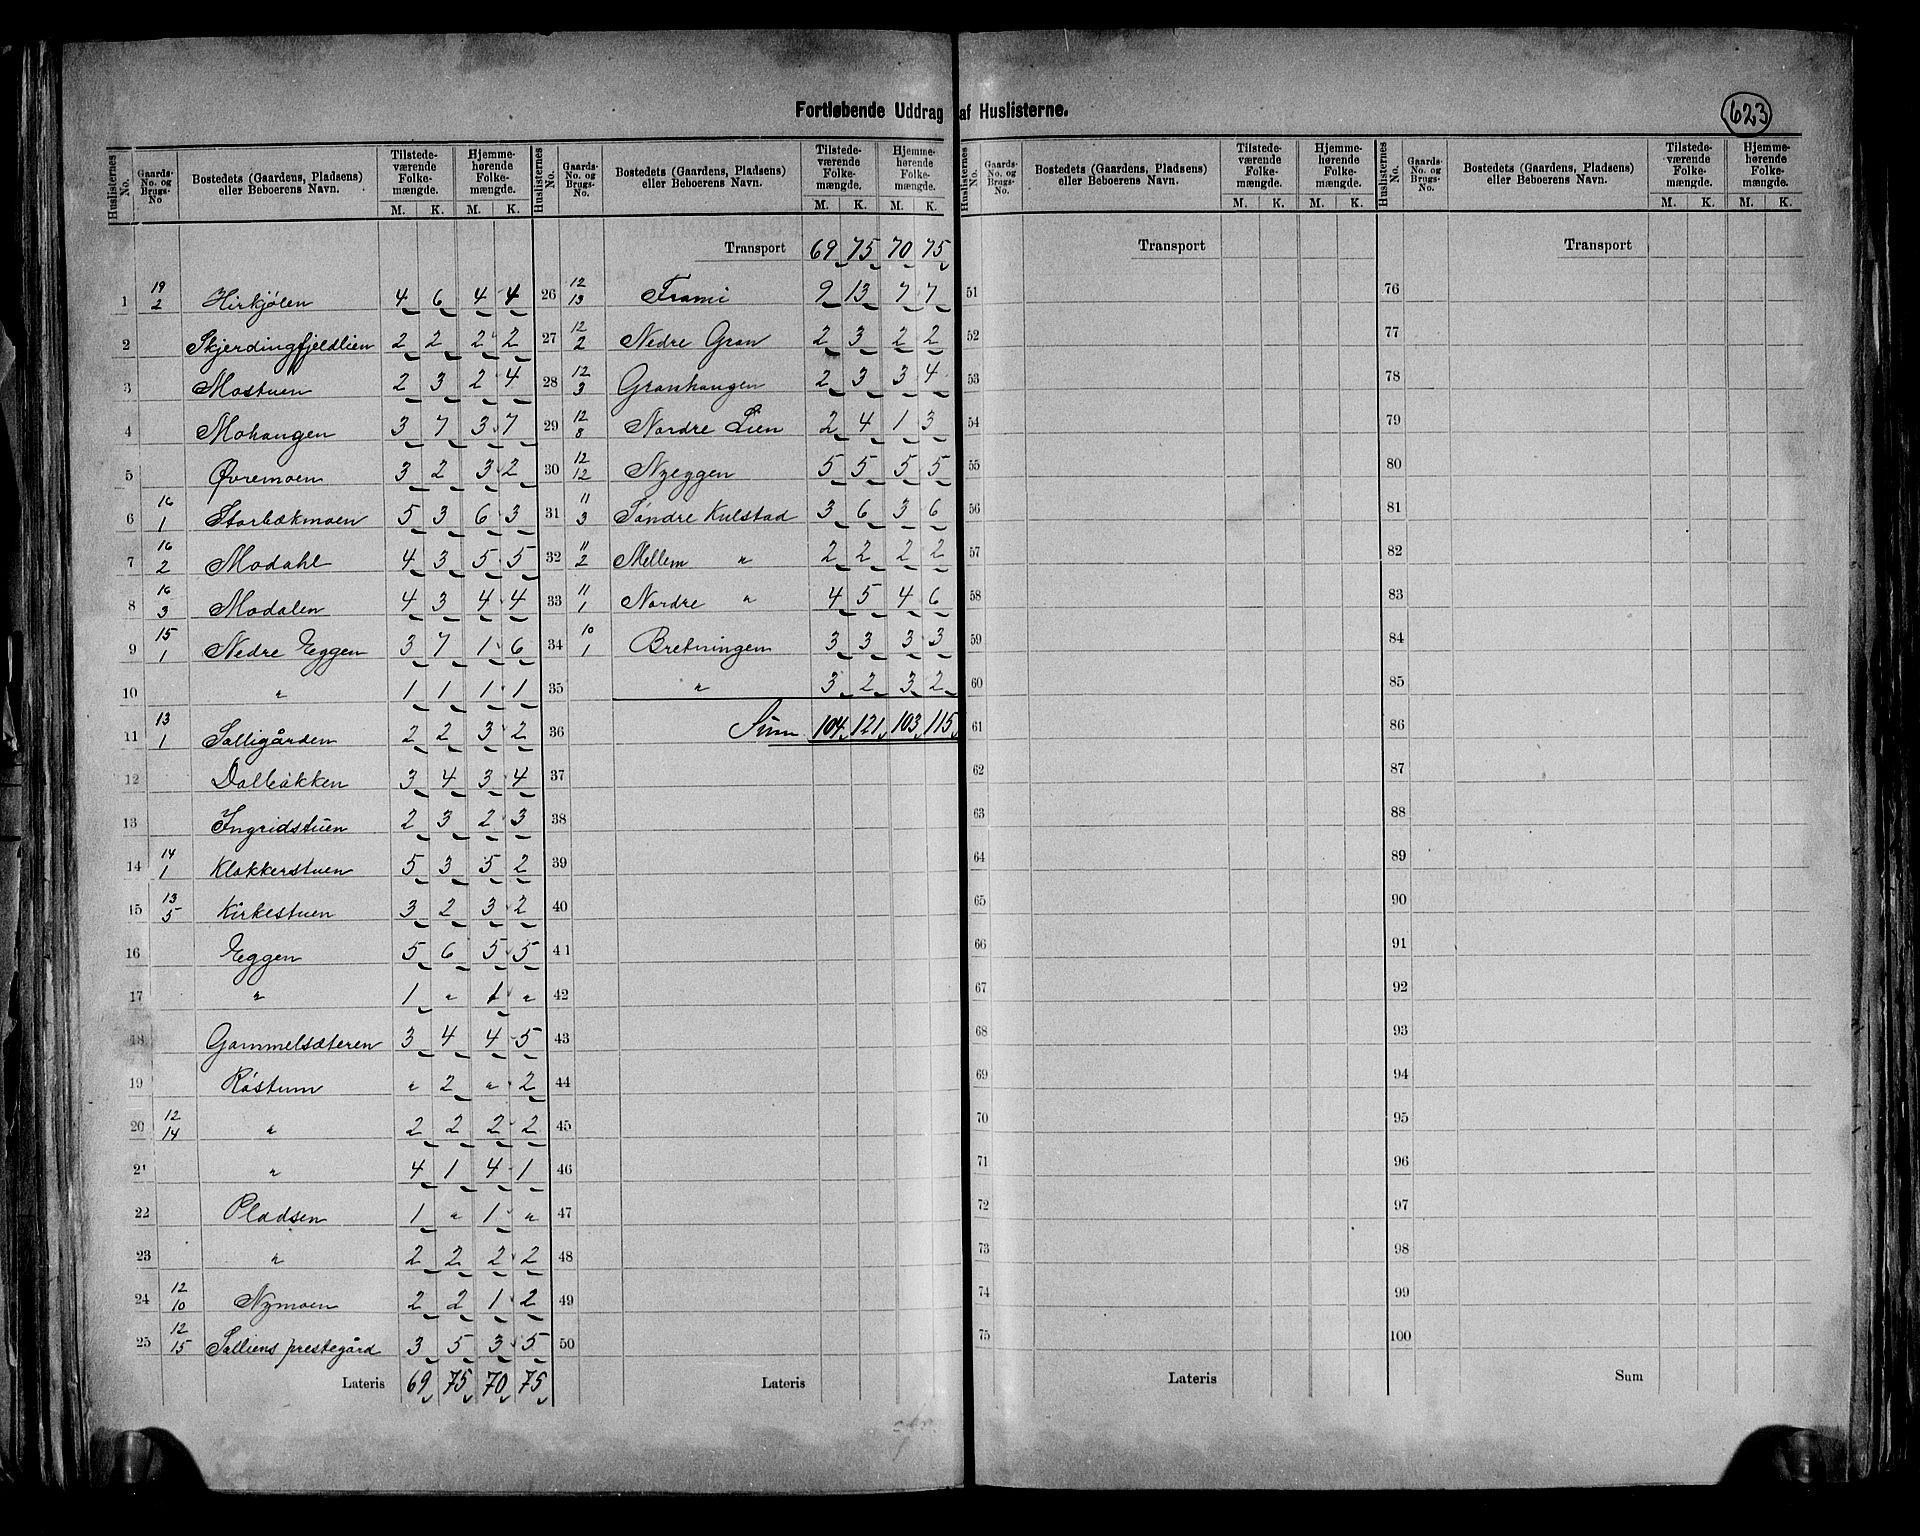 Fortløbende Uddrag af Huslisterne.
623
Huslisternes No. | Gaards-No. og Brugs-No | Bostedets (Gaardens, Pladsens) eller Beboerens Navn. | Tilstedeværende Folkemængde. M. K. | Hjemmehørende Folkemængde. M. K.
1 | 19/2 | Hirkjølen | 4 | 6 | 4 | 4
2 | | Skjerdingfjeldlien | 2 | 2 | 2 | 2
3 | | Mostuen | 2 | 3 | 2 | 4
4 | | Mohaugen | 3 | 7 | 3 | 7
5 | | Øvremoen | 3 | 2 | 3 | 2
6 | 16/1 | Storbækmoen | 5 | 3 | 6 | 3
7 | 16/2 | Modahl | 4 | 3 | 5 | 5
8 | 16/3 | Modalen | 4 | 3 | 4 | 4
9 | 15/1 | Nedre Eggen | 3 | 7 | 1 | 6
10 | | " | 1 | 1 | 1 | 1
11 | 13/1 | Solligården | 2 | 2 | 3 | 2
12 | | Dolbäkken | 3 | 4 | 3 | 4
13 | | Ingridstuen | 2 | 3 | 2 | 3
14 | 14/1 | Klokkerstuen | 5 | 3 | 5 | 2
15 | 13/5 | Kirkestuen | 3 | 2 | 3 | 2
16 | | Eggen | 5 | 6 | 5 | 5
17 | | " | 1 | " | 1 | "
18 | | Gammelsæteren | 3 | 4 | 4 | 5
19 | | Røstum | " | 2 | " | 2
20 | 12/14 | " | 2 | 2 | 2 | 2
21 | | " | 4 | 1 | 4 | 1
22 | | Pladsen | 1 | " | 1 | "
23 | | " | 2 | 2 | 2 | 2
24 | 12/10 | Nymoen | 2 | 2 | 1 | 2
25 | 12/15 | Solliens prestegård | 3 | 5 | 3 | 5
Lateris | 69 | 75 | 70 | 75
Huslisternes No. | Gaards-No. og Brugs-No. | Bostedets (Gaardens, Pladsens) eller Beboerens Navn. | Tilstedeværende Folkemængde. M. K. | Hjemmehørende Folkemængde. M. K.
Transport | 69 | 75 | 70 | 75
26 | 12/13 | Trami | 9 | 13 | 7 | 7
27 | 12/2 | Nedre Gran | 2 | 3 | 2 | 2
28 | 12/3 | Granhaugen | 2 | 3 | 3 | 4
29 | 12/8 | Nordre Lien | 2 | 4 | 1 | 3
30 | 12/12 | Nyeggen | 5 | 5 | 5 | 5
31 | 11/3 | Søndre Kulstad | 3 | 6 | 3 | 6
32 | 11/2 | Mellem " | 2 | 2 | 2 | 2
33 | 11/1 | Nordre " | 4 | 5 | 4 | 6
34 | 10/1 | Bretningen | 3 | 3 | 3 | 3
35 | | " | 3 | 2 | 3 | 2
36 | | Sum | 104 | 121 | 103 | 115
37
38
39
40
41
42
43
44
45
46
47
48
49
50
Lateris
Huslisternes No. | Gaards-No. og Brugs-No. | Bostedets (Gaardens, Pladsens) eller Beboerens Navn. | Tilstedeværende Folkemængde. M. K. | Hjemmehørende Folkemængde. M. K.
Transport
51
52
53
54
55
56
57
58
59
60
61
62
63
64
65
66
67
68
69
70
71
72
73
74
75
Lateris
Huslisternes No. | Gaards-No. og Brugs-No. | Bostedets (Gaardens, Pladsens) eller Beboerens Navn. | Tilstedeværende Folkemængde. M. K. | Hjemmehørende Folkemængde. M. K.
Transport
76
77
78
79
80
81
82
83
84
85
86
87
88
89
90
91
92
93
94
95
96
97
98
99
100
Sum